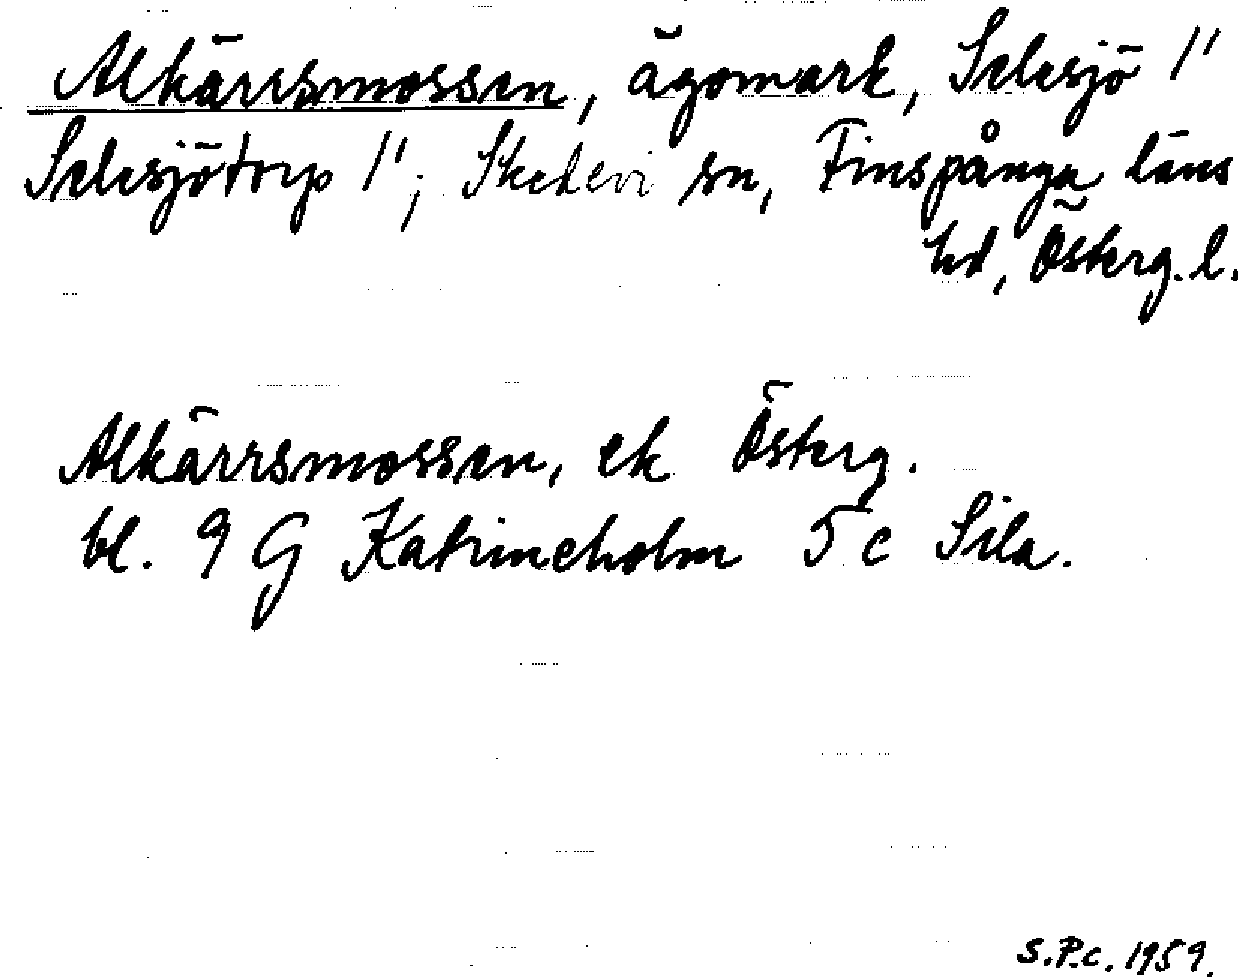 Alkärrsmossen, ägomark, Selesjö 1¹
Selesjötorp 1¹; Skedevi sn, Finspånga läns
hd, Österg. l.
Alkärrsmossen, ek Österg.
bl. 9 G Katrineholm 5 c Sila.
S.P.c. 1959.